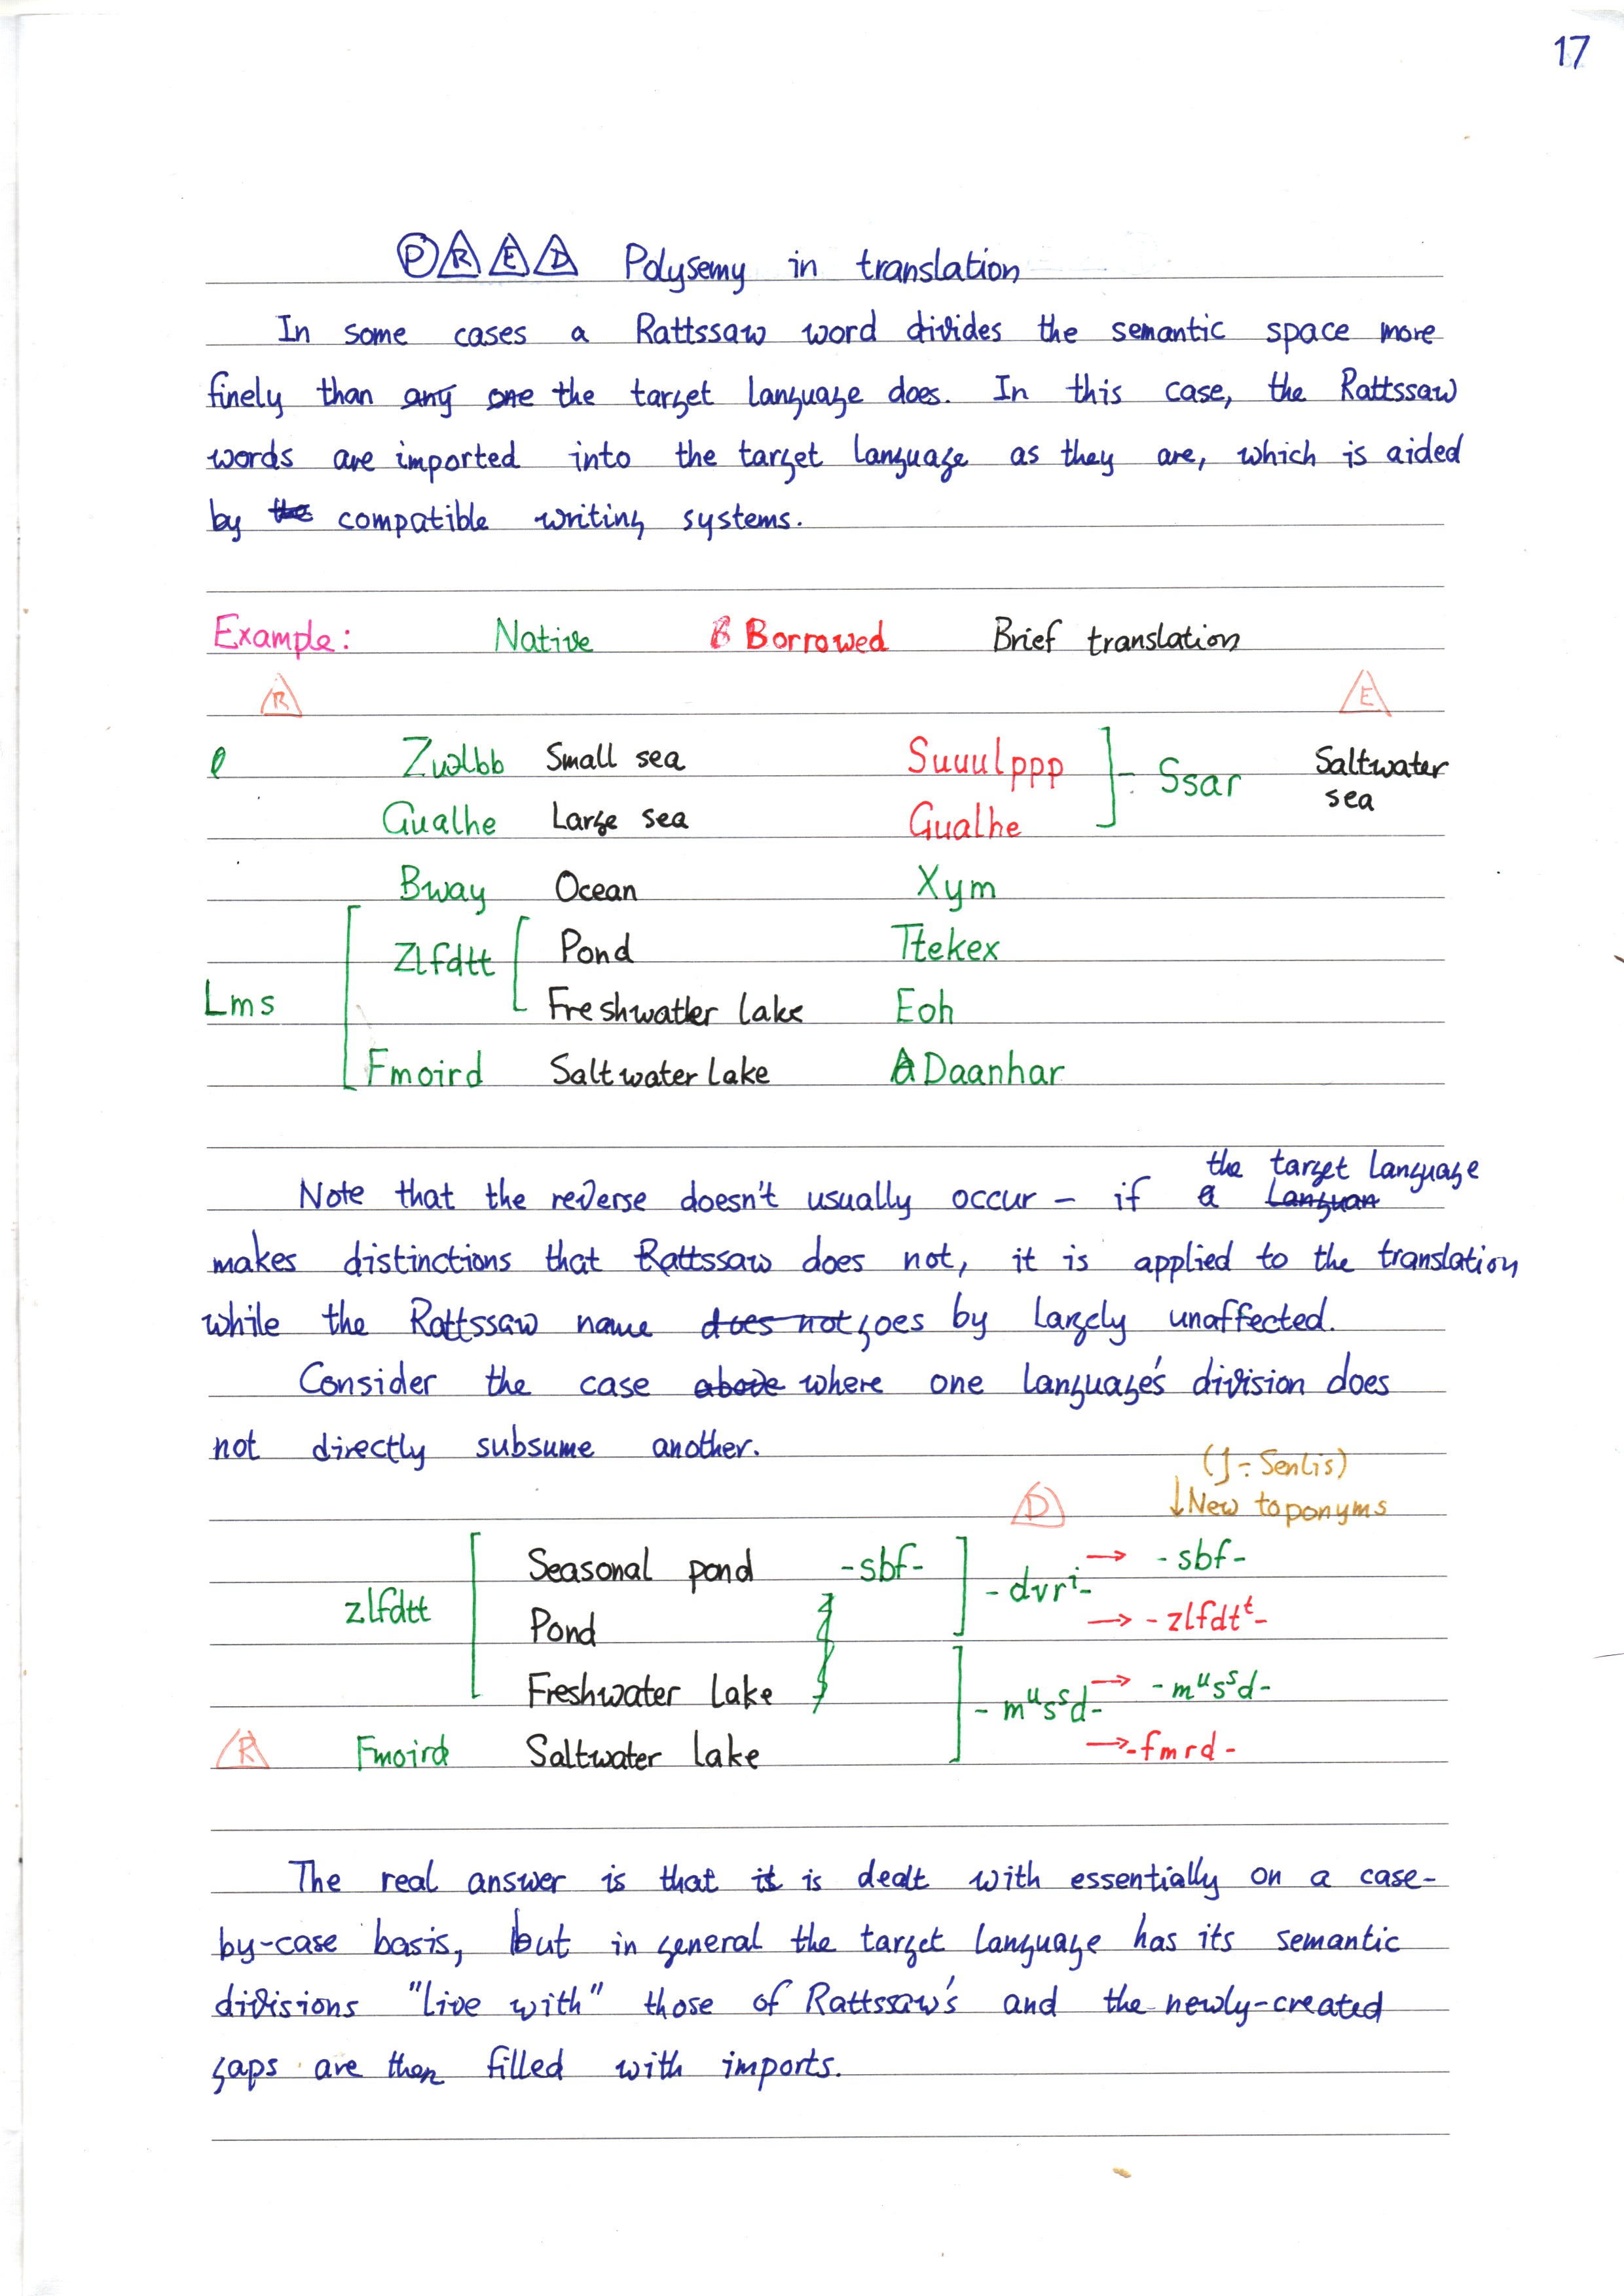 17
P R E D Polysemy in translation
In some cases a Rattssaw word divides the semantic space more
finely than any one the target language does. In this case, the Rattssaw
words are imported into the target language as they are, which is aided
by the compatible writing systems.
Example: Native B Borrowed Brief translation
R E
Zwəlbb Small sea Suuulppp Ssar Saltwater sea
Gualhe Large sea Gualhe
Bway Ocean Xym
Zlfdtt Pond Ttekex
Lms Freshwater lake Eoh
Fmoird Saltwater lake Daanhar
Note that the reverse doesn't usually occur – if a the target language
makes distinctions that Rattssaw does not, it is applied to the translation
while the Rattssaw name does not goes by largely unaffected.
Consider the case above where one language's division does
not directly subsume another.
(ʃ = Senlis)
D ↓ New toponyms
Seasonal pond -sbf- -dvrⁱ- → -sbf-
zlfdtt Pond → -zlfdtᵗ-
Freshwater lake -mᵘsˢd- → -mᵘsˢd-
R Fmoird Saltwater lake → -fmrd-
The real answer is that it is dealt with essentially on a case-
by-case basis, but in general the target language has its semantic
divisions "live with" those of Rattssaw's and the newly-created
gaps are then filled with imports.